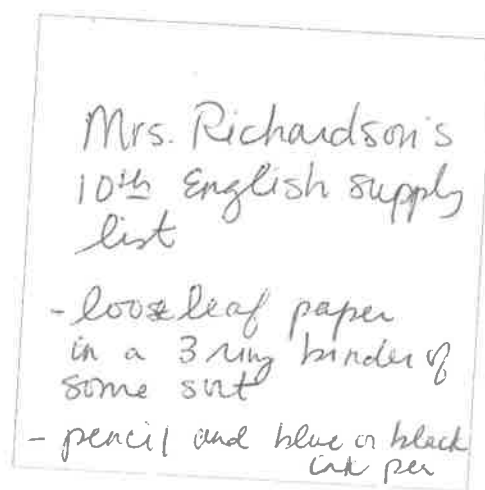 Mrs. Richardson's
10th English supply
list
- loose leaf paper
in a 3 ring binder of
some sort
- pencil and blue or black
ink pen